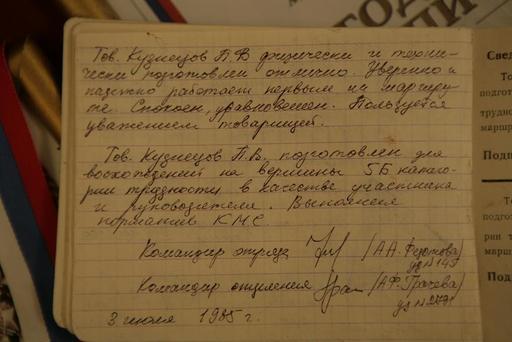 Тов. Кузнецов П.В физически и техни-
чески подготовлен отлично. Уверенно и
надежно работает первым на маршру-
те. Спокоен, уравновешен. Пользуется
уважением товарищей.
Тов. Кузнецов П.В. подготовлен для
восхождений на вершины 5Б катего-
рии трудности в качестве участника
и руководителя. Выполнил
норматив КМС.
Командир отряда /А.А.
уд №145
Командир отделения /А.Ф. Грачева/
уд №
3 июля 1985 г.
Свед
То
подгот
трудно
маршр
Подп
То
подгот
рии т
маршр
Под